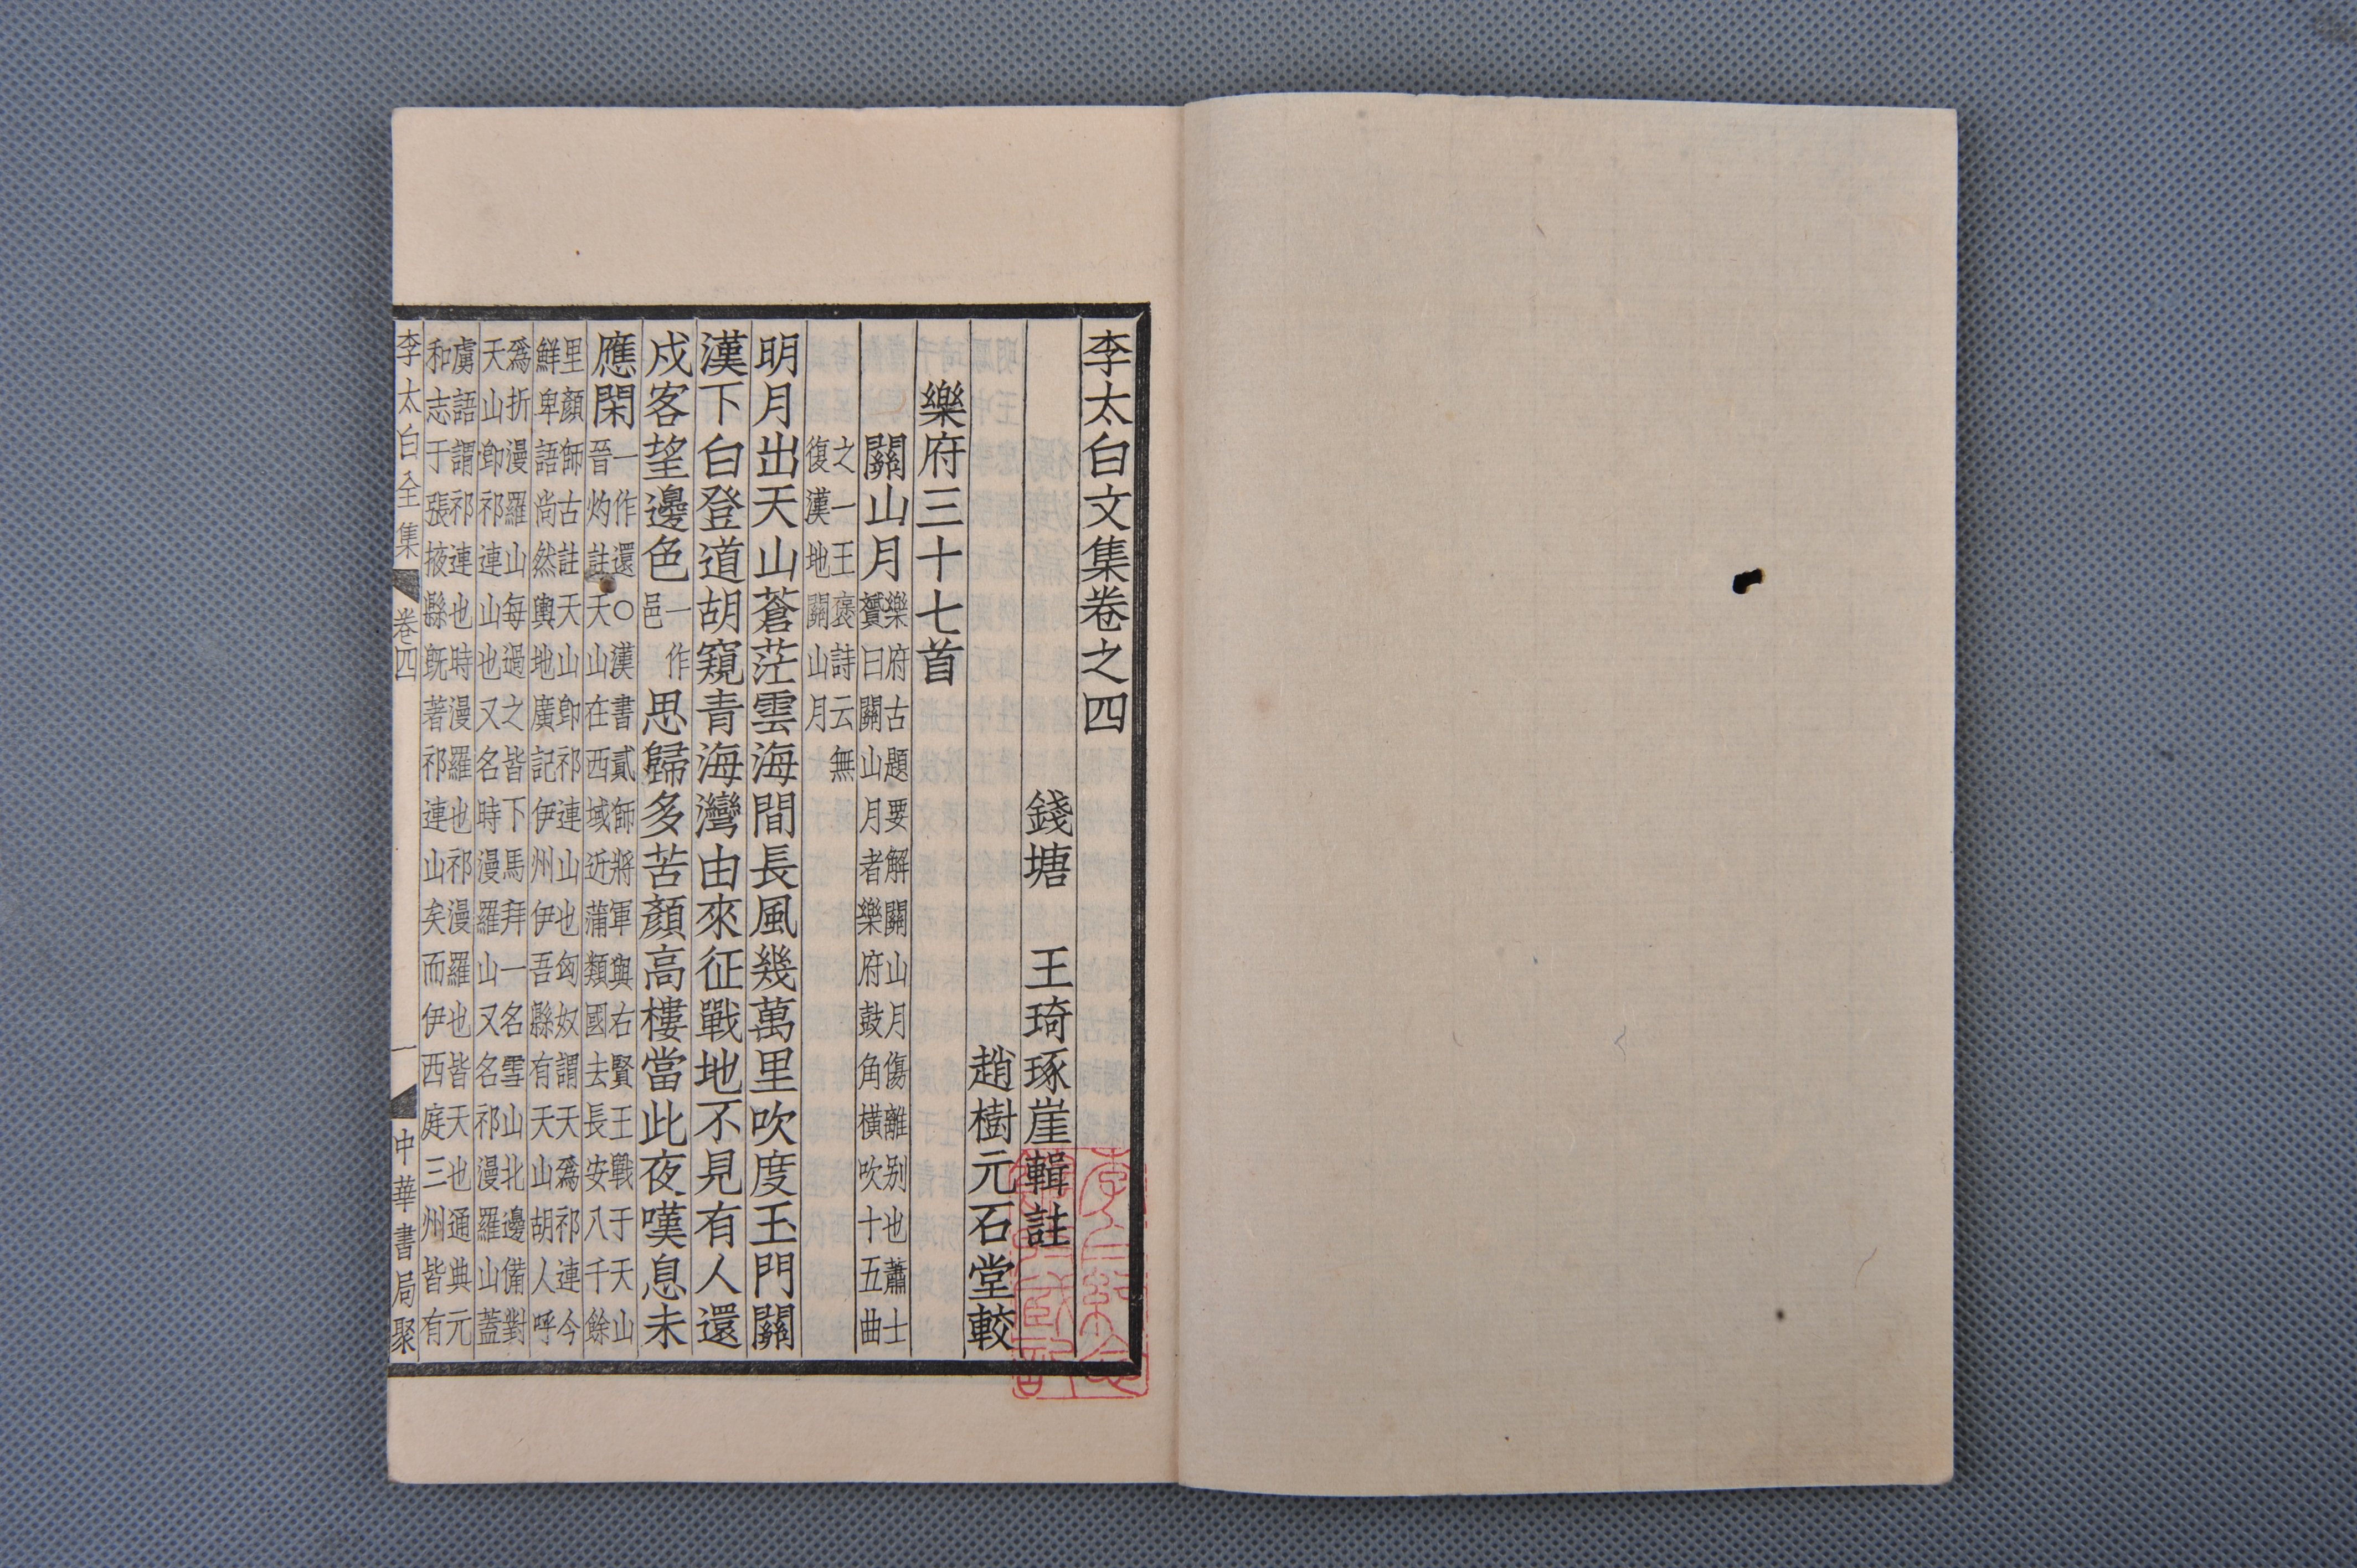 李太白文集卷之四
錢塘　王琦琢崖輯註
趙樹元石堂較
樂府三十七首
關山月樂府古題要解關山月傷離别也蕭士
贇曰關山月者樂府鼓角橫吹十五曲
之一王褒詩云無
復漢地關山月
明月出天山蒼茫雲海間長風幾萬里吹度玉門關
漢下白登道胡窺青海灣由來征戰地不見有人還
戍客望邊色一作邑思歸多苦顏高樓當此夜嘆息未
應閑一作還○漢書貳師將軍與右賢王戰于天山
晉灼註天山在西域近蒲類國去長安八千餘
里顏師古註天山卽祁連山也匈奴謂天爲祁連今
鮮卑語尚然輿地廣記伊州伊吾縣有天山胡人呼
爲折漫羅山每過之皆下馬拜一名雪山北邊備對
天山卽祁連山也又名時漫羅山又名祁漫羅山蓋
虜語謂祁連也時漫羅也祁漫羅也皆天也通典元
和志于張掖縣旣著祁連山矣而伊西庭三州皆有
李太白全集　卷四　一　中華書局聚